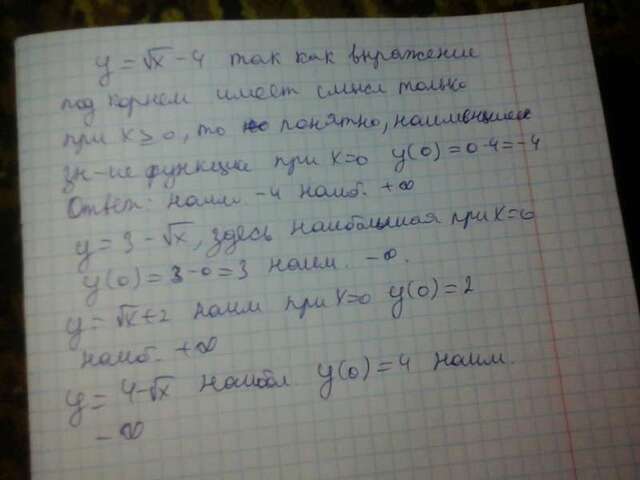 y = √x - 4 так как выражение
под корнем имеет смысл только
при x ≥ 0, то понятно, наименьшее
зн-ие функции при x=0 y(0)=0-4=-4
Ответ: наим. -4 наиб. +∞
y = 3 - √x, здесь наибольшая при x=0
y(0) = 3-0=3 наим. -∞.
y = √x+2 наим при x=0 y(0)=2
наиб. +∞
y = 4-√x наибол. y(0)=4 наим.
-∞